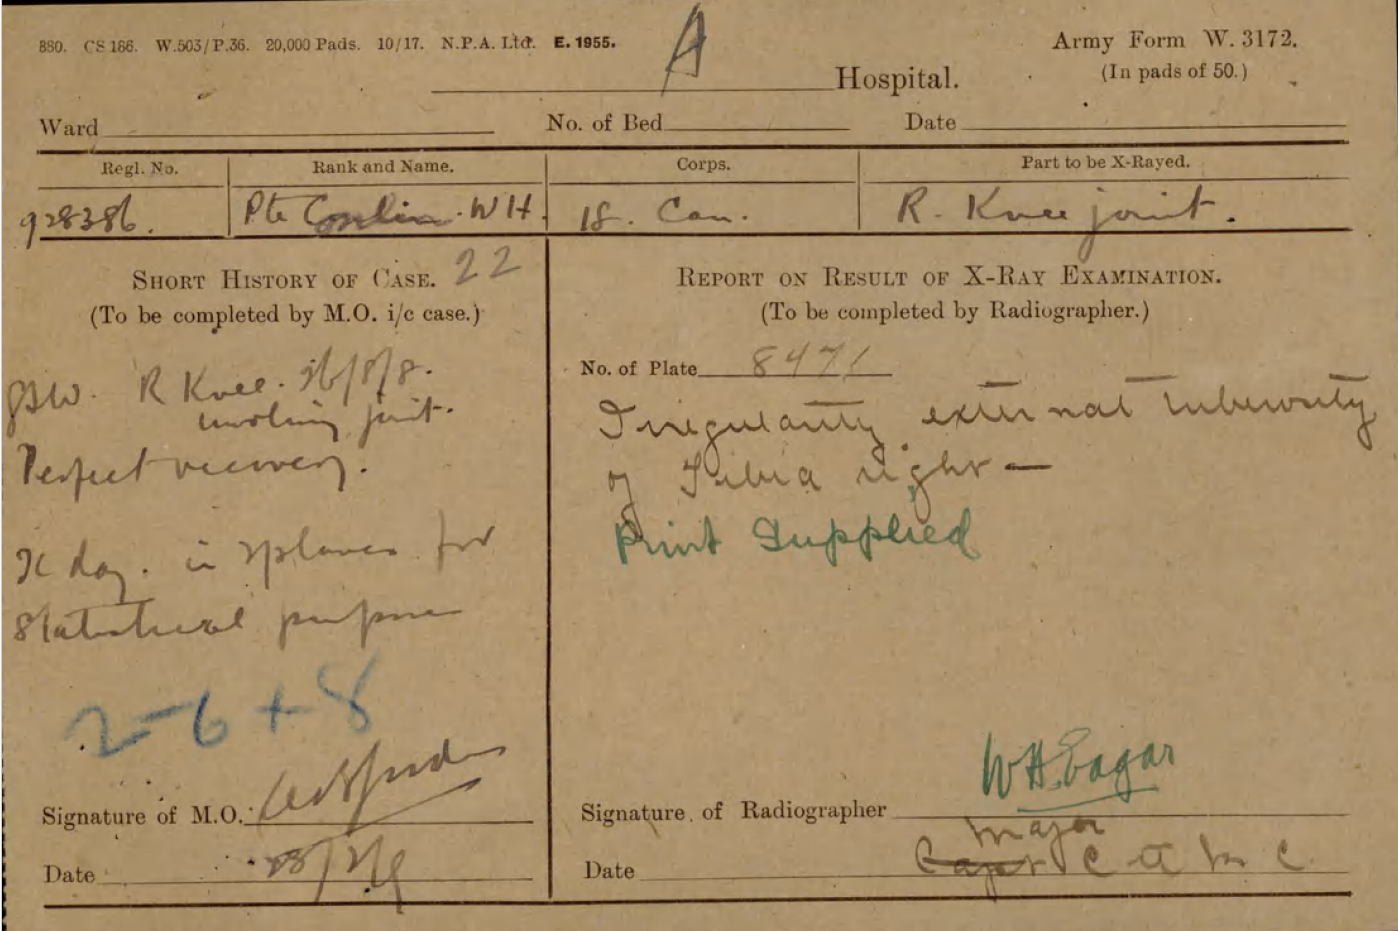 880. CS 166. W.503/P.36. 20,000 Pads. 10/17. N.P.A. Ltd. E. 1955.
Army Form W. 3172.
(In pads of 50.)
A
Hospital.
Ward
No. of Bed
Date
Regl. No.
Rank and Name.
Corps.
Part to be X-Rayed.
928386.
Pte Conlin. W H.
18. Can.
R. Knee joint.
SHORT HISTORY OF CASE. 22
(To be completed by M.O. i/c case.)
GSW. R Knee. 26/8/8.
involving joint.
Perfect recovery.
X Ray. in 2 planes for
Statistical purposes
2-6+8
Signature of M.O.
Date
REPORT ON RESULT OF X-RAY EXAMINATION.
(To be completed by Radiographer.)
No. of Plate 8471
Irregularity external tuberosity
of Tibia right —
Print Supplied
Signature of Radiographer W.H. Eagar
Major
Date Capt C A M C